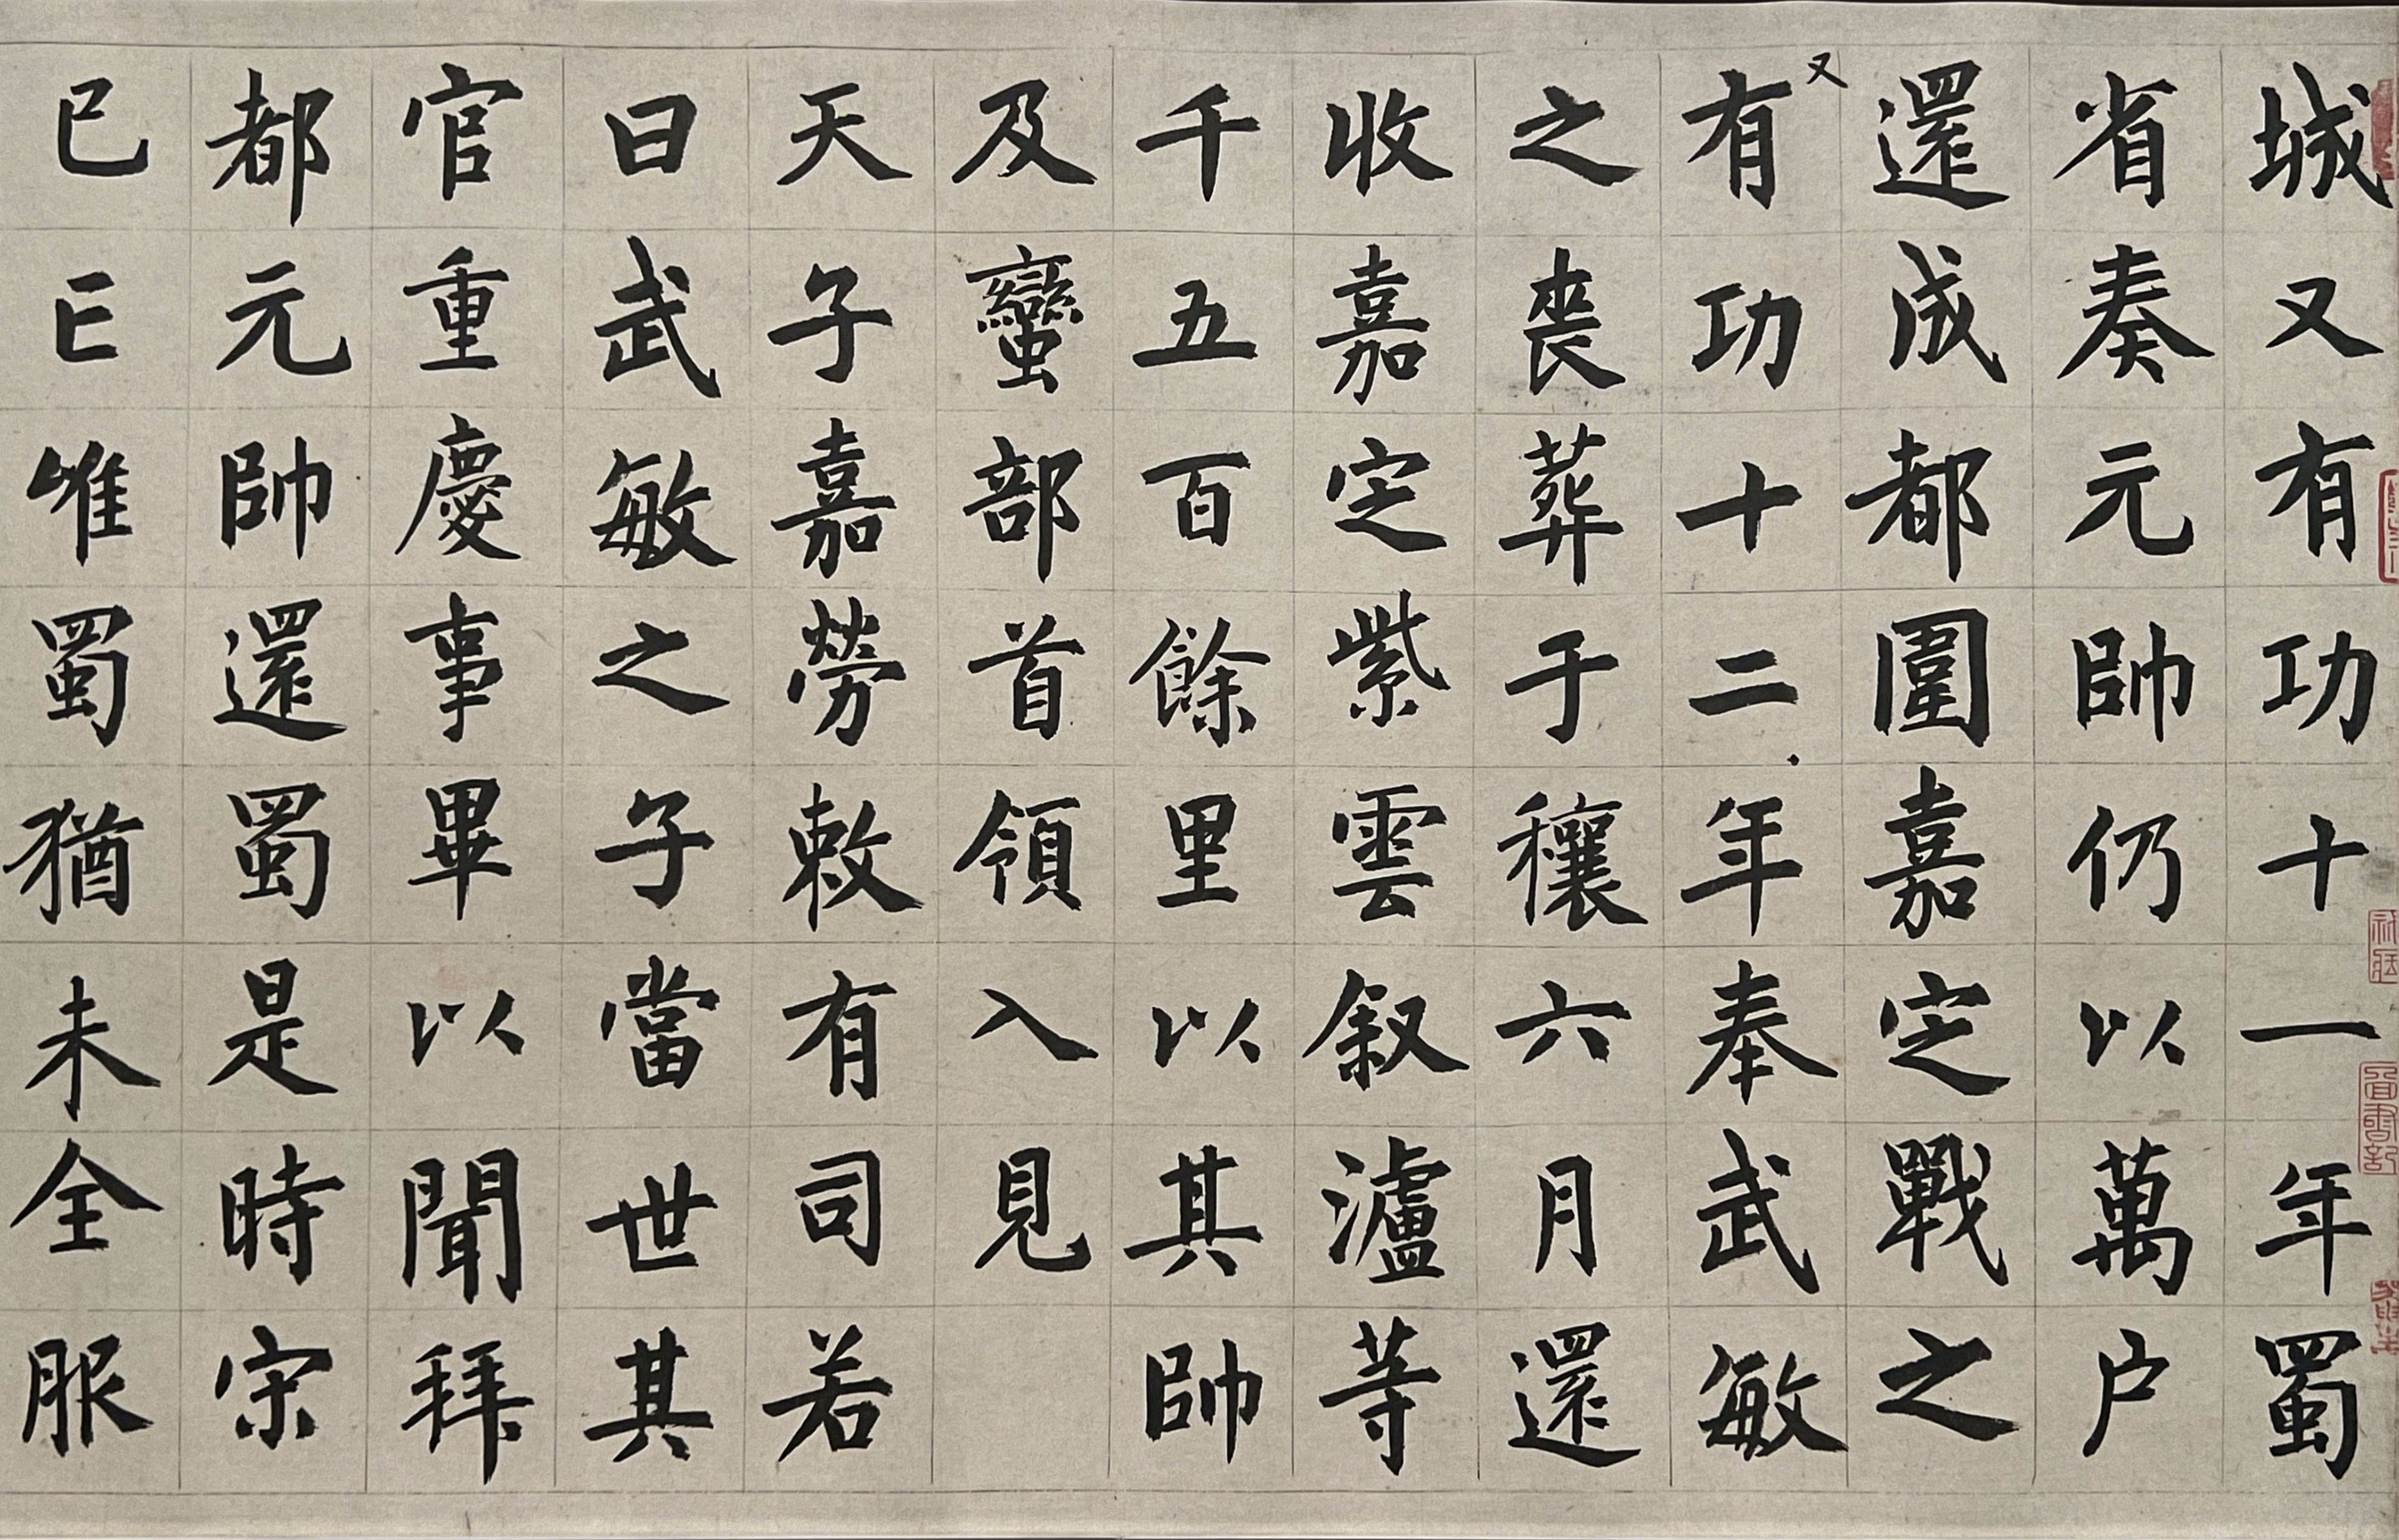 城又有功十一年蜀
省奏元帥仍以萬户
還成都圍嘉定戰之
又有功十二年奉武敏
之喪葬于穰六月還
收嘉定紫雲叙瀘等
千五百餘里以其帥
及蠻部首領入見
天子嘉勞敕有司若
曰武敏之子當世其
官重慶事畢以聞拜
都元帥還蜀是時宋
已亡唯蜀猶未全服